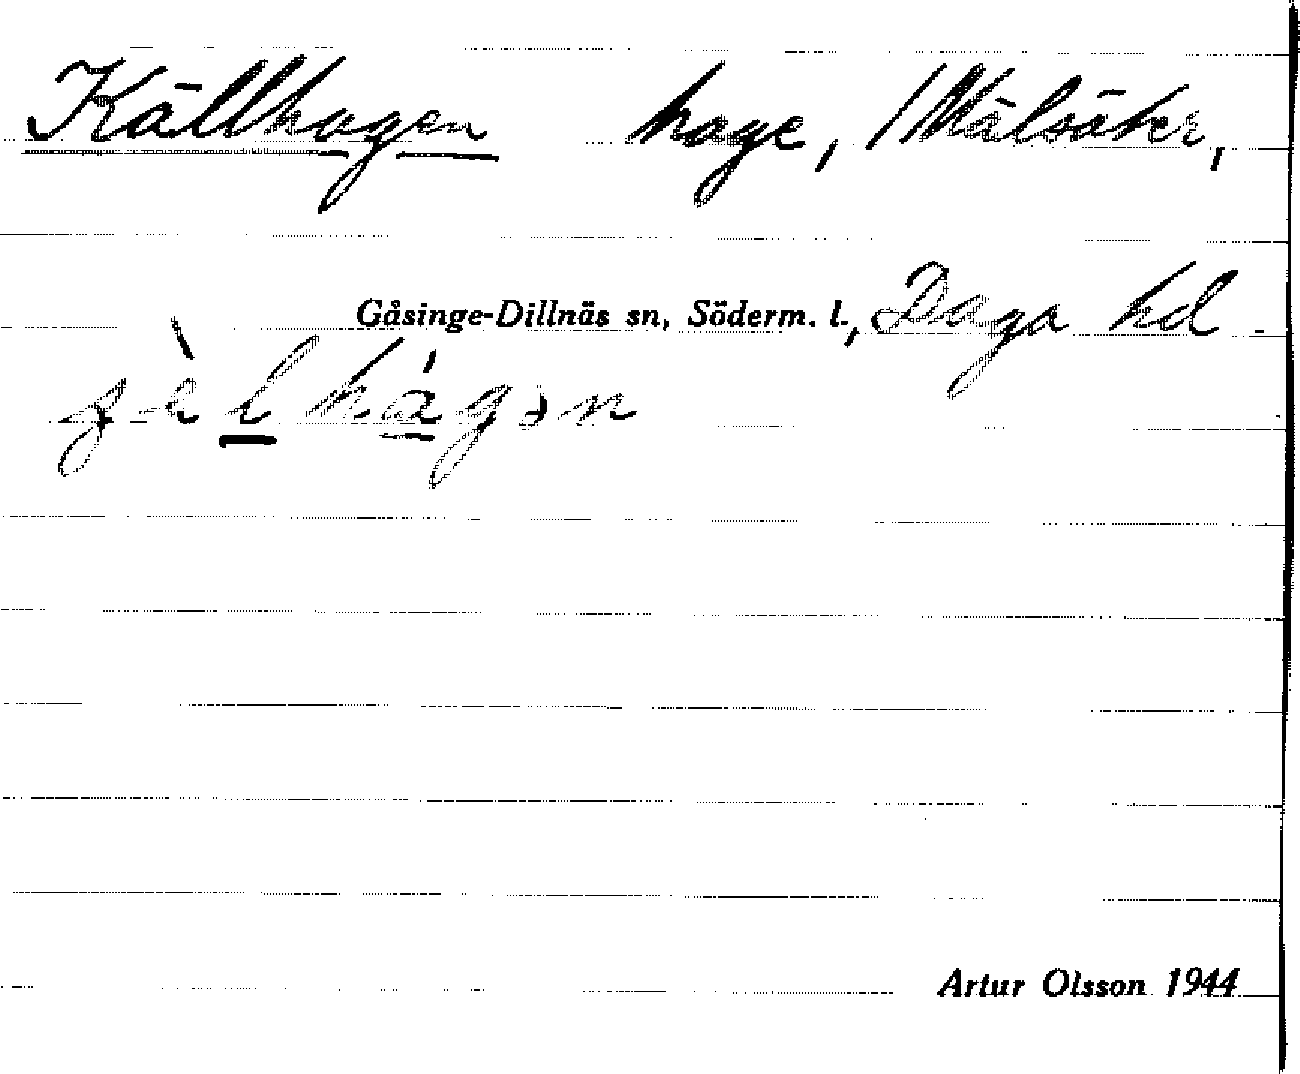 Källhagen hage, Mälsåker,
Gåsinge-Dillnäs sn, Söderm. l., Daga hd
Artur Olsson 1944